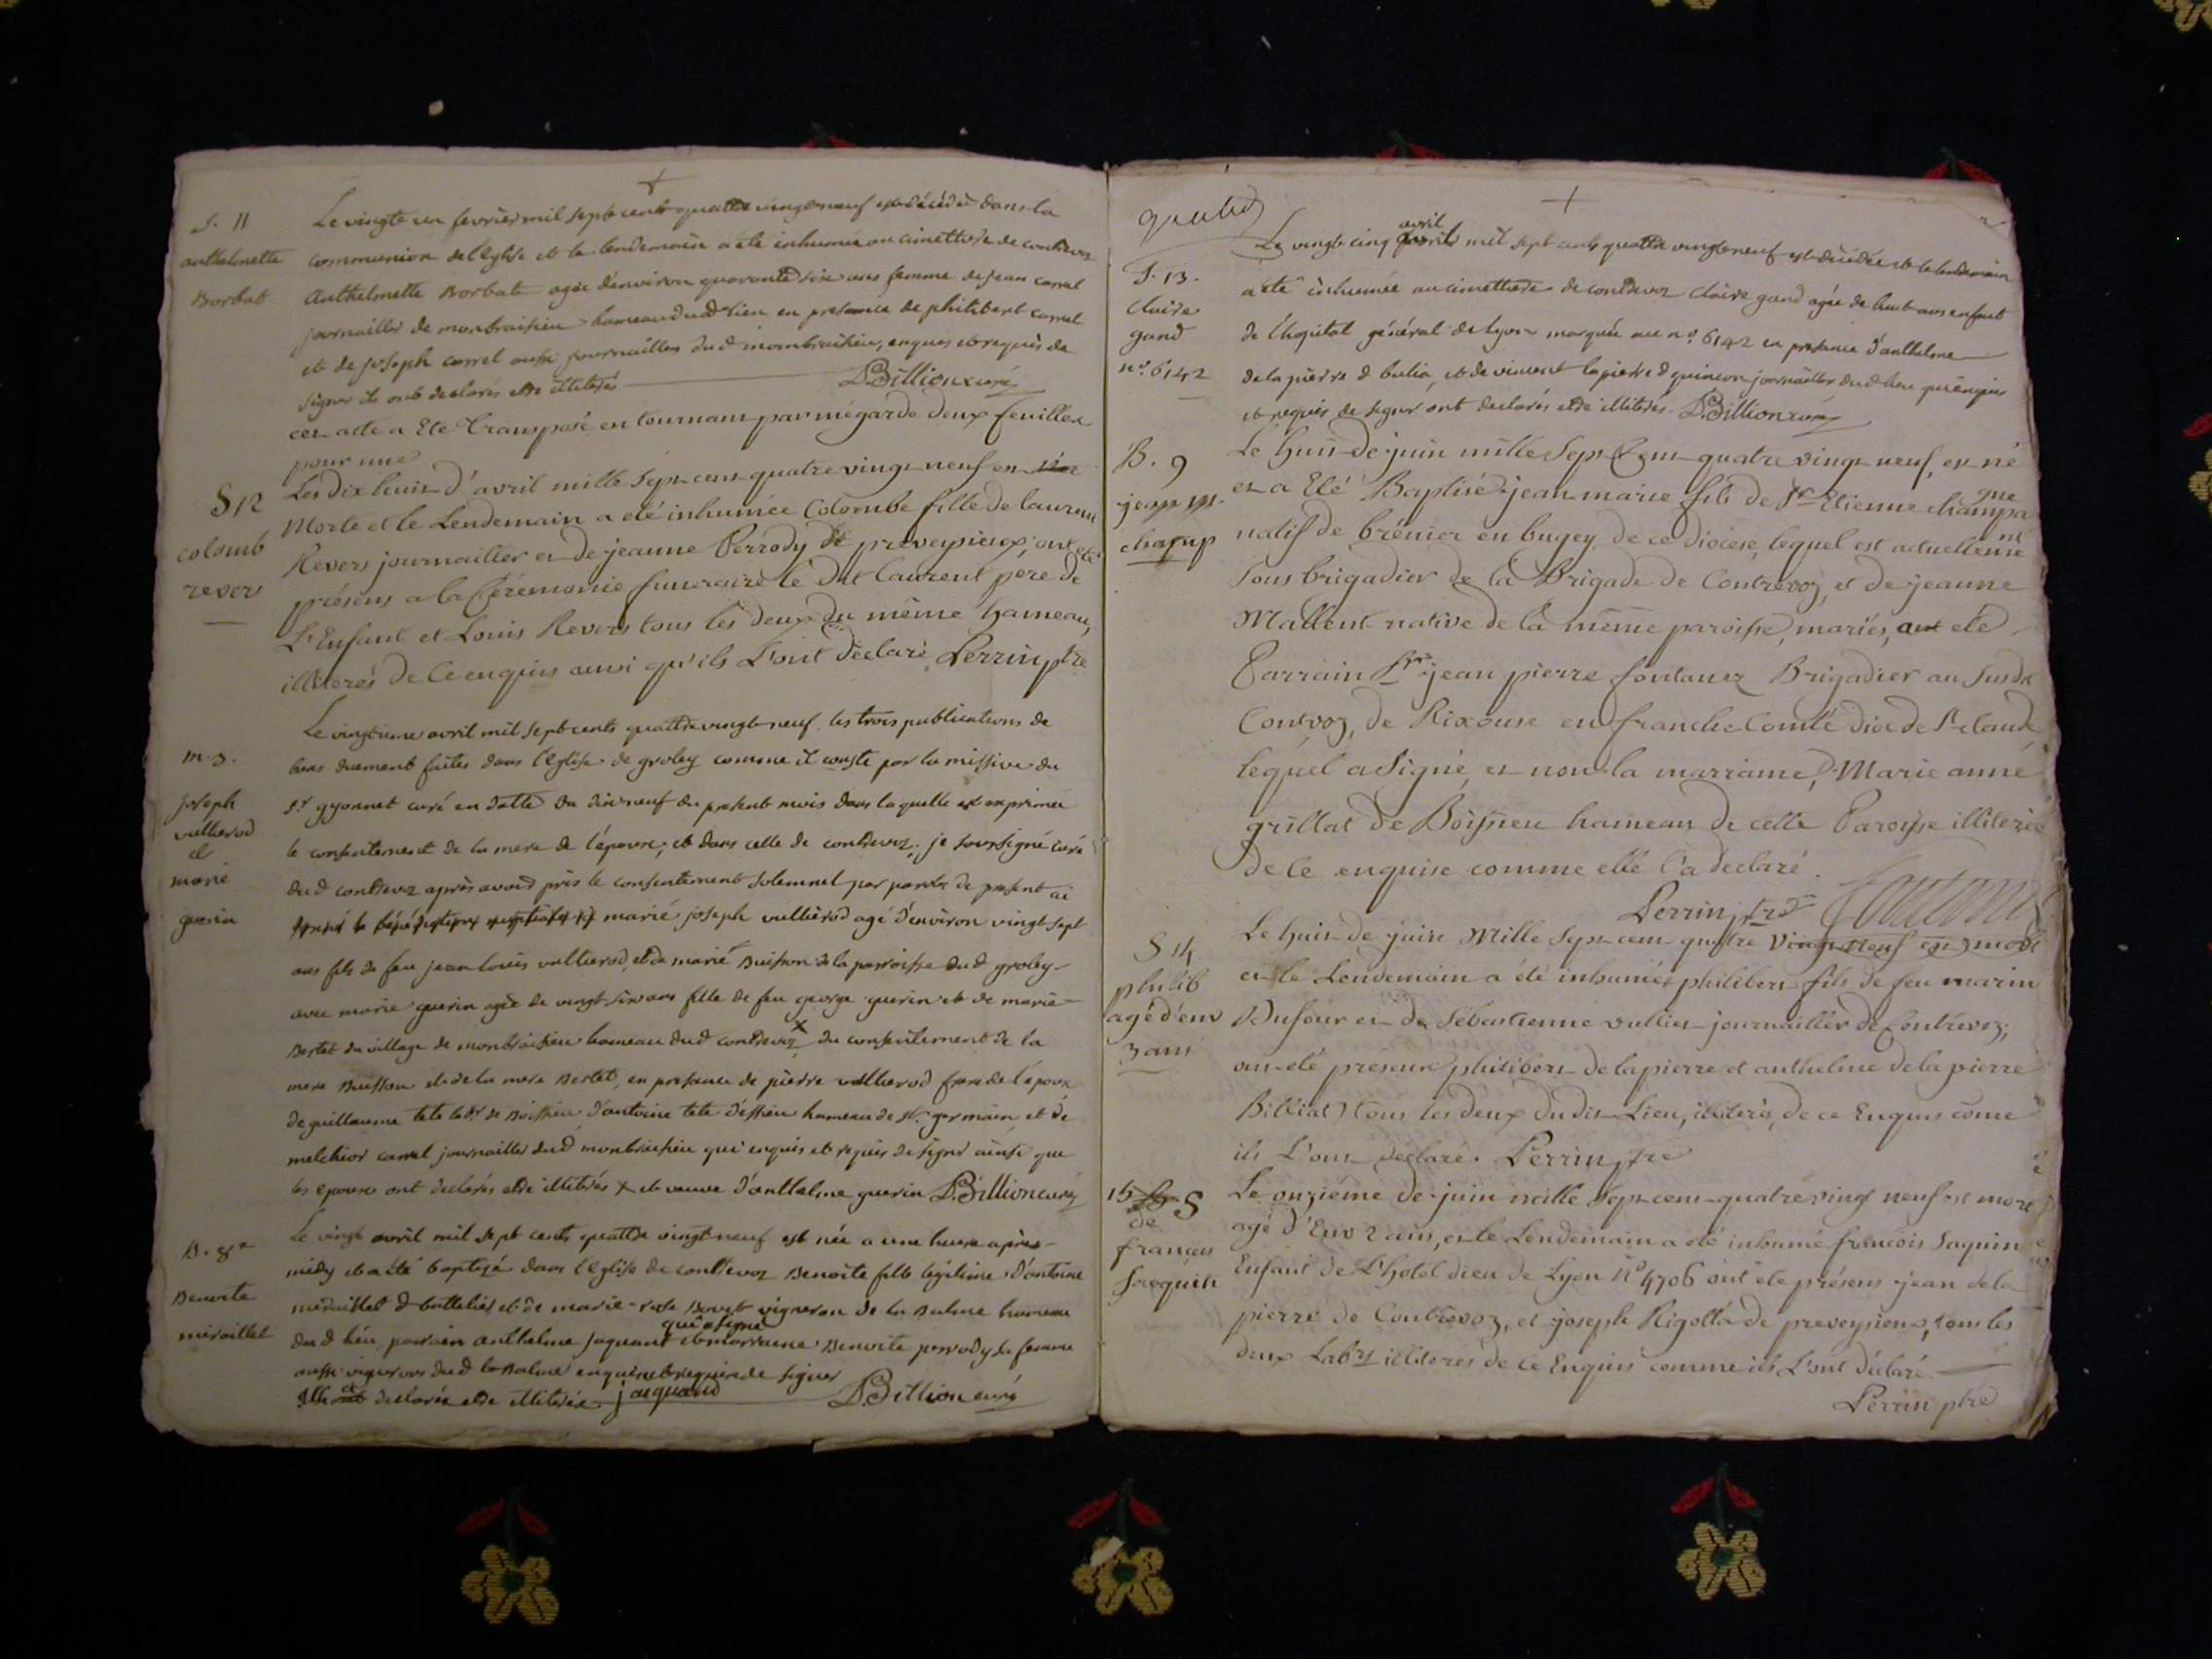 S. 11
anthelmette
Borbat
Le vingte un fevrier mil sept cent quattre vingt neuf est décédée dans la
communion de l'eglise et le lendemain a été inhumée au cimettiere de contrevoz
Anthelmette Borbat agée d'environ quarante six ans femme de jean carrel
journaillier de montbraisieu hameau dud lieu en presence de philibert carrel
et de joseph carrel aussi journailliers dud montbraisieu, enquis et requis de
signer ils ont declarés etre illiterés D. Billion curé
cet acte a Eté Transposé en tournant par mégarde deux feuilles
pour une
S 12
colomb
revers
Les dix huit d'avril mille sept cent quatre vingt neuf est
Morte et le Lendemain a eté inhumée Colombe fille de laurent
Revers journaillier et de jeanne Perrody de preveyzieux; ont eté
présens a la Cérémonie funeraire le dit Laurent pere de
L'Enfant et Louis Revers tous les deux du même hameau,
illiterés de ce enquis ainsi qu'ils L'ont déclaré Perrin ptre
m. 3.
joseph
vullierod
et
marie
guerin
Le vingtieme avril mil sept cents quattre vingt neuf les trois publications de
bans duement faites dans l'eglise de groley comme il conste par la missive du
Sr gyonnet curé en datte du dix neuf du present mois dans laquelle est exprimée
le consentement de la mere de l'epouse, et dans celle de contrevoz, je soussigné curé
dud contrevoz après avoir pris le consentement solemnel par parole de present ai
marié joseph vullierod agé d'environ vingt sept
ans fils de feu jean louis vullierod, et de marie Buisson de la parroisse dud groley
avec marie guerin agée de vingt six ans fille de feu george guerin et de marie
Bertet du village de montbraisieu hameau dud contrevoz x du consentement de la
mere Buisson et de la mere Bertet, en presence de pierre vullierod frere de l'epoux
de guillaume tete labr de Boissieu d'antoine tete d'essieu hameau de st. germain et de
melchior carrel journaillier dud montbraisieu qui enquis et requis de signer ainsi que
les epouses ont declarés etre illiterés x et veuve d'anthelme guerin D. Billion curé
B. 8e
Benoite
miraillet
Le vingt avril mil sept cents quattre vingt neuf est née a une heure après
midy et a été baptisée dans l'eglise de contrevoz Benoite fille legitime d'antoine
miraillet et de marie-rose Bovet vigneron de la Balme hameau
dud lieu parrain anthelme jaquand qui a signé et marraine Benoite perrody sa femme
aussi vignerons dud la Balme enquise et requise de signer
elle a declarée etre illiterée. jacquand D. Billion curé
S. 13.
Claire
gand
no. 6142
Le vingt cinq avril mil sept cents quattre vingt neuf est décédée et le lendemain
a été inhumée au cimettiere de contrevoz Claire gand agée de huit ans enfant
de l'hopital général de Lyon marquée au no. 6142 en presence d'anthelme
de la pierre et de vincent lapierre journaillier dud lieu qui enquis
et requis de signer ont declarés etre illiterés. D. Billion curé
B. 9
jean m.
champ
Le huit de juin mille Sept Cent quatre vingt neuf, est né
et a Eté Baptisé jean-marie fils de Sr Etienne champagne
natif de brénier en bugey de ce diocese, lequel est actuellement
sous brigadier de la Brigade de Contrevoz, et de jeanne
Mallent native de la même paroisse, mariés, ont eté
Parrain Sr jean pierre fontanez Brigadier au susdit
Contvoz, de Rixouse en franche Comté dioc de St Claude
lequel a signé, et non la marraine, Marie anne
grillat de Boissieu hameau de cette Paroisse illiterée
de ce enquise comme elle l'a declaré.
Perrin ptre
S 14
philib
agé d'env
3 ans
Le huit de juin Mille Sept cent quatre vingt neuf est mort
et le Lendemain a été inhumé philibert fils de feu marin
Dufour et de Sébastienne vullier journaillier de Contrevoz;
ont eté présens philibert de lapierre et anthelme de la pierre
Billiat tous les deux dudit Lieu, illiterés, de ce Enquis come
ils L'ont déclaré. Perrin ptre
15 S
de
francois
Jaquin
Le onziéme de juin mille Sept cent quatre vingt neuf est mort
agé d'Env 2 ans, et le Lendemain a eté inhumé francois Jaquin
Enfant de L'hotel dieu de Lyon No 4706 ont eté présens jean dela
pierre de Contrevoz, et joseph Rigollá de preveyzieux, tous les
deux Labrs illiterés de ce Enquis comme ils L'ont déclaré.
Perrin ptre